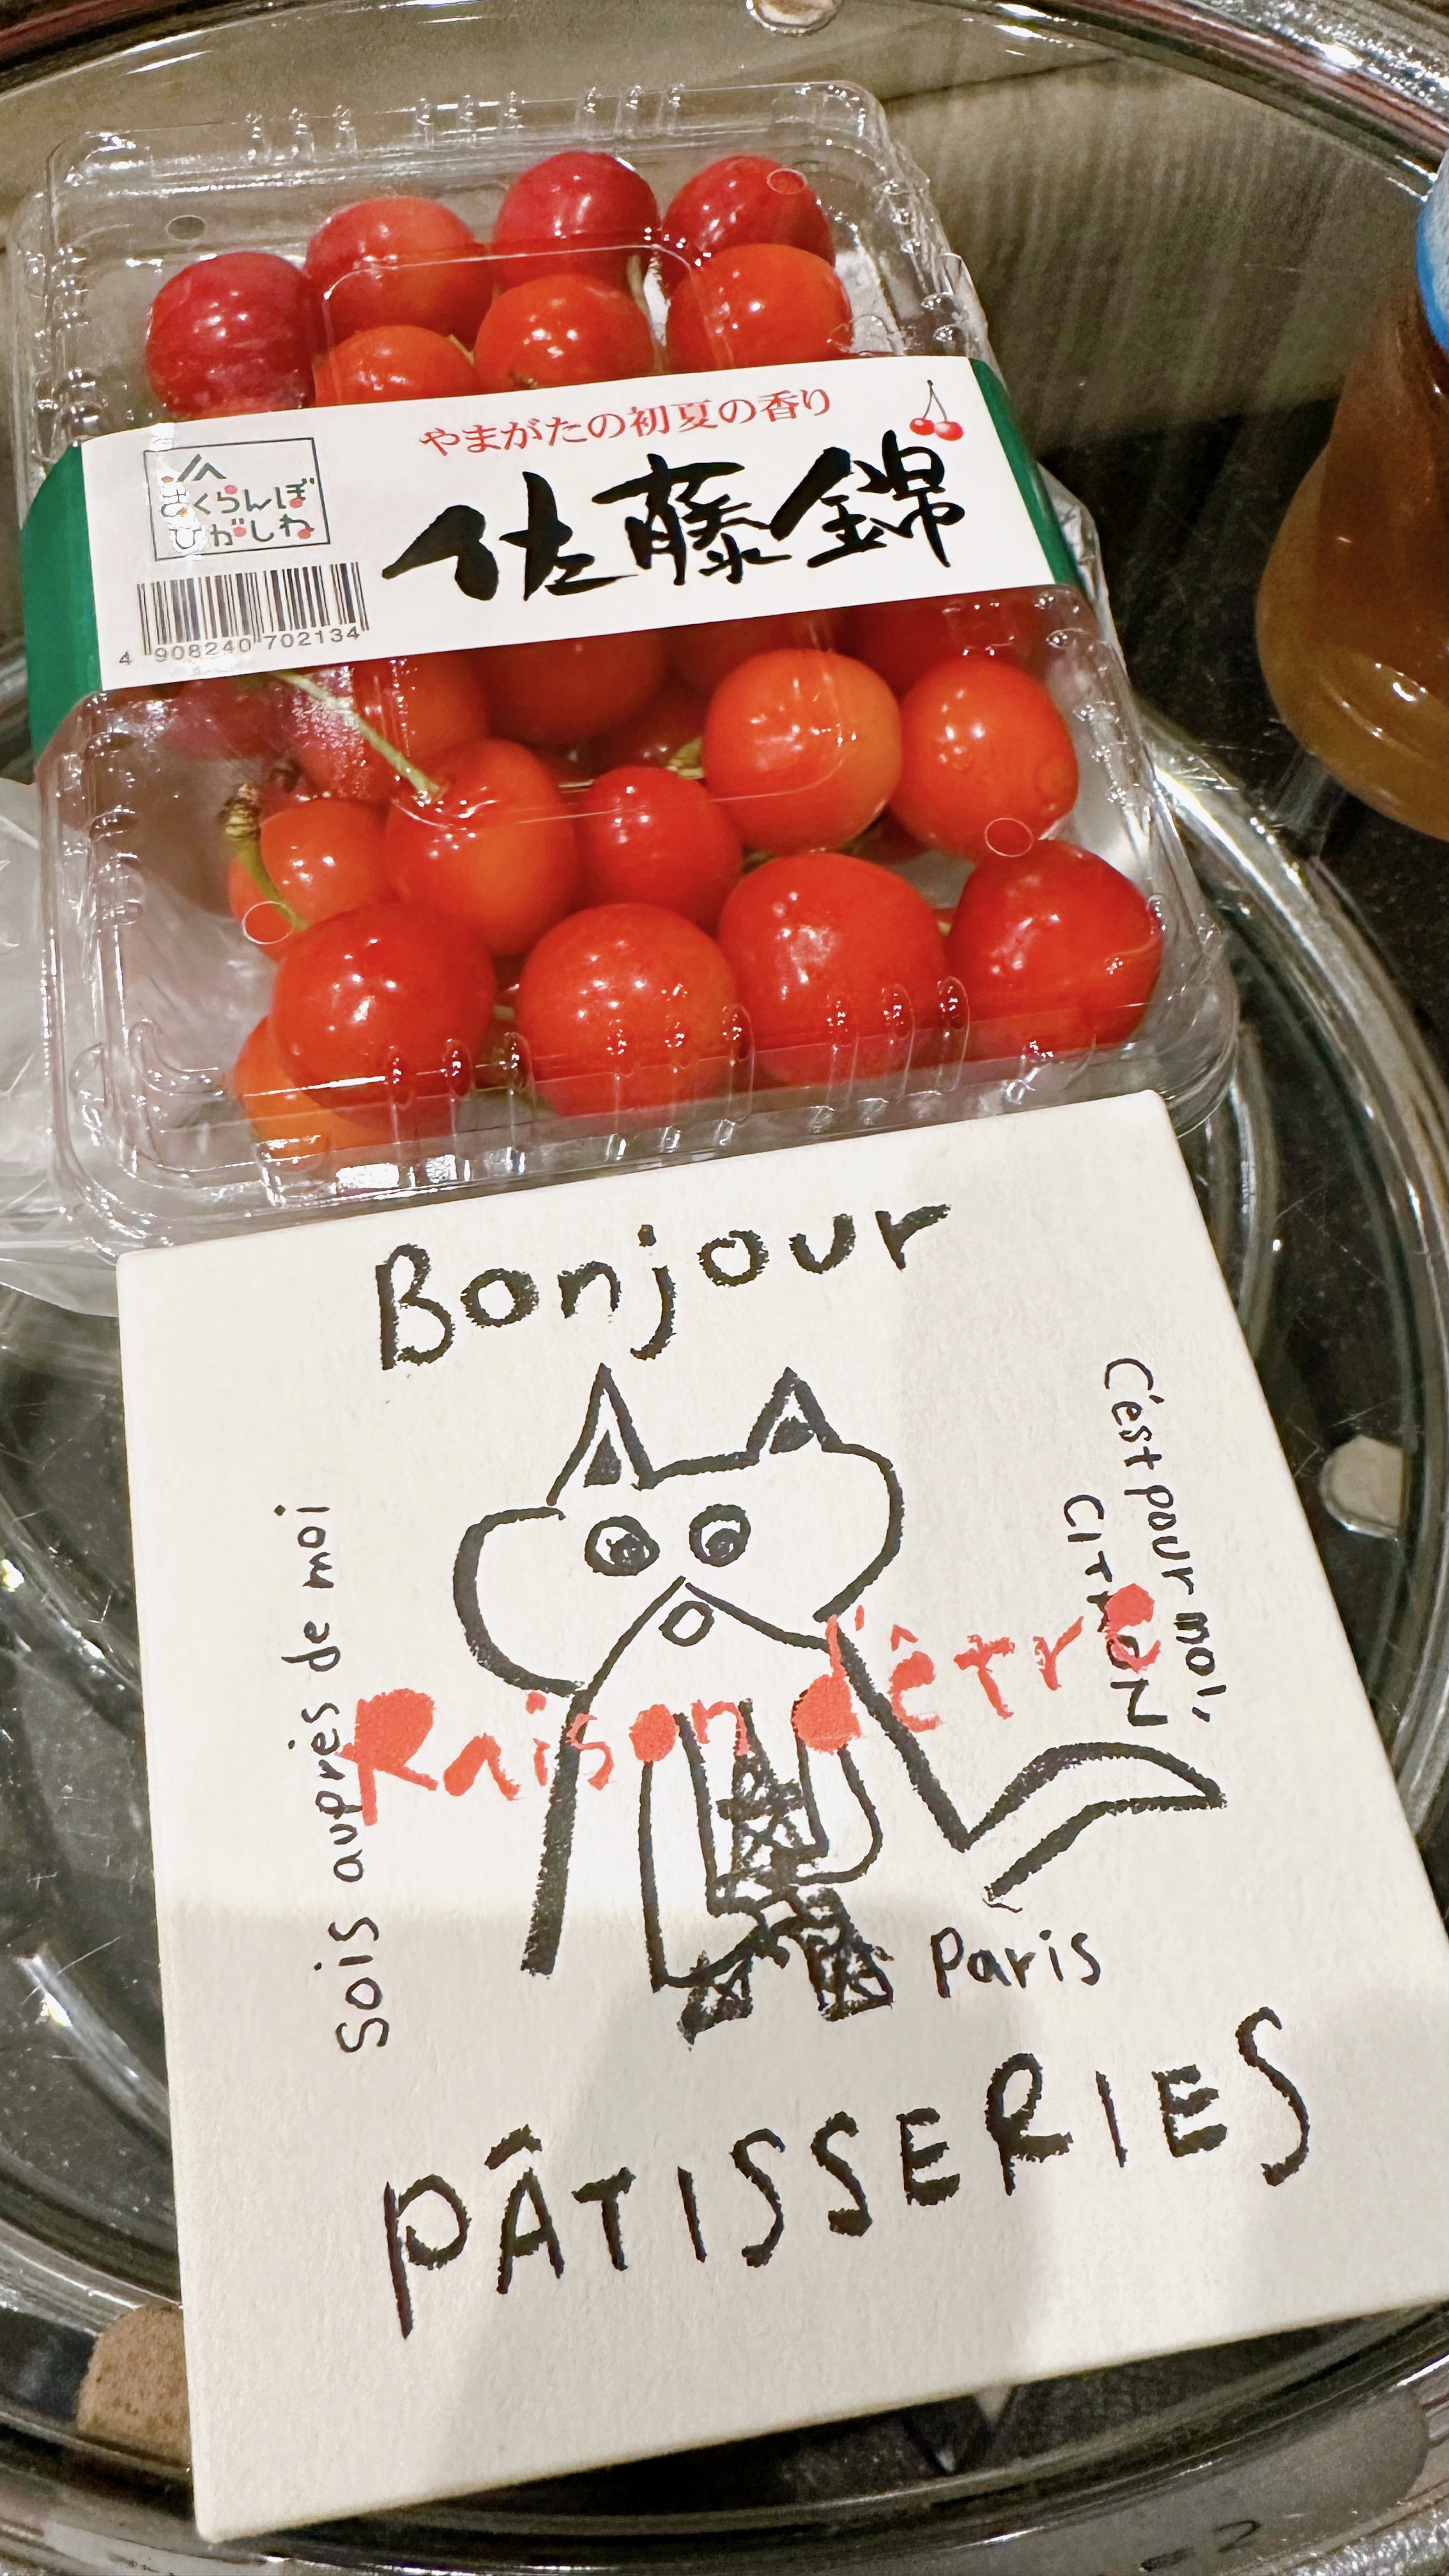 やまがたの初夏の香り
佐藤錦
JA
さくらんぼ
ひがしね
4 908240 702134
Bonjour
C'est pour moi,
CITRON
Sois auprès de moi
Raison d'être
Paris
PÂTISSERIES